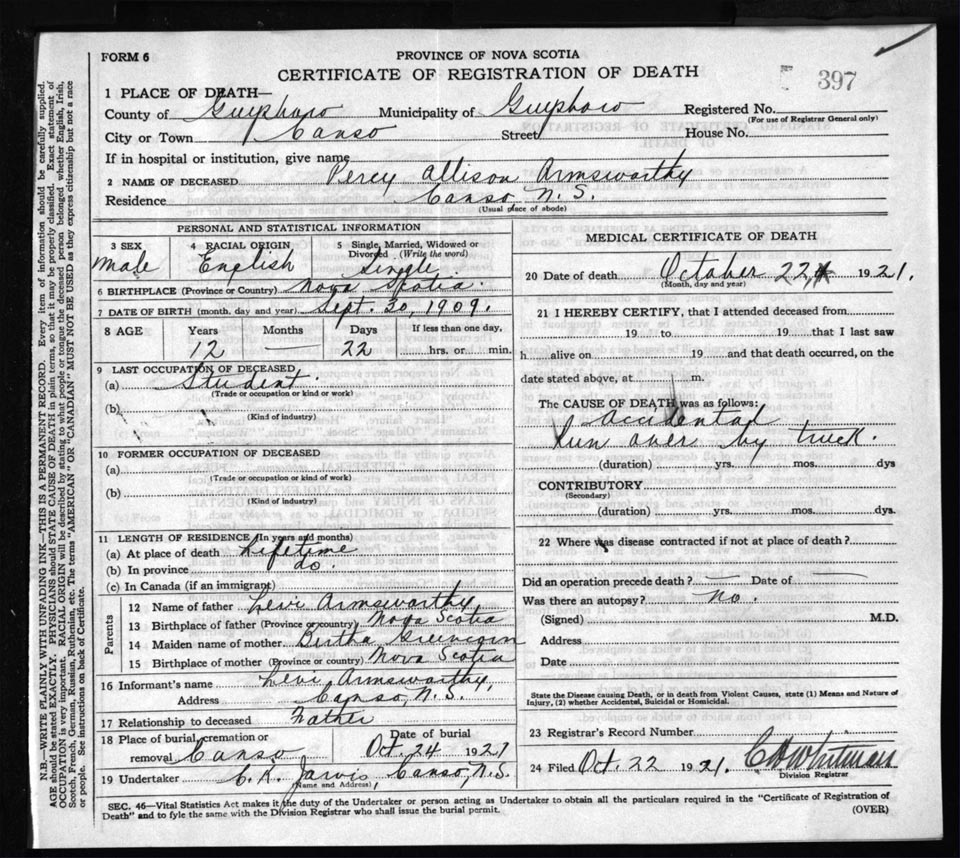 FORM 6
PROVINCE OF NOVA SCOTIA
CERTIFICATE OF REGISTRATION OF DEATH
397
1 PLACE OF DEATH—
County of Guysboro Municipality of Guysboro Registered No.
(For use of Registrar General only)
City or Town Canso Street House No.
If in hospital or institution, give name
2 NAME OF DECEASED Percy Allison Armsworthy
Residence Canso, N.S.
(Usual place of abode)
PERSONAL AND STATISTICAL INFORMATION
3 SEX
Male
4 RACIAL ORIGIN
English
5 Single, Married, Widowed or Divorced (Write the word)
Single.
6 BIRTHPLACE (Province or Country) Nova Scotia.
7 DATE OF BIRTH (month, day and year) Sept. 30, 1909.
8 AGE Years Months Days If less than one day,
12 — 22 hrs. or min.
9 LAST OCCUPATION OF DECEASED
(a) Student.
(Trade or occupation or kind of work)
(b)
(Kind of industry)
10 FORMER OCCUPATION OF DECEASED
(a)
(Trade or occupation or kind of work)
(b)
(Kind of industry)
11 LENGTH OF RESIDENCE (In years and months)
(a) At place of death Lifetime
(b) In province do.
(c) In Canada (if an immigrant)
Parents
12 Name of father Levi Armsworthy
13 Birthplace of father (Province or country) Nova Scotia
14 Maiden name of mother Bertha Greencorn
15 Birthplace of mother (Province or country) Nova Scotia
16 Informant's name Levi Armsworthy,
Address Canso, N.S.
17 Relationship to deceased Father
18 Place of burial, cremation or removal Canso Date of burial Oct. 24 1921
19 Undertaker C. R. Jarvis, Canso, N.S.
(Name and Address)
MEDICAL CERTIFICATE OF DEATH
20 Date of death October 22, 1921.
(Month, day and year)
21 I HEREBY CERTIFY, that I attended deceased from
19 to 19 that I last saw
h alive on 19 and that death occurred, on the
date stated above, at m.
The CAUSE OF DEATH was as follows:
Accidental
Run over by truck.
(duration) yrs. mos. dys
CONTRIBUTORY
(Secondary)
(duration) yrs. mos. dys.
22 Where was disease contracted if not at place of death?
Did an operation precede death? — Date of —
Was there an autopsy? No.
(Signed) M.D.
Address
Date
State the Disease causing Death, or in death from Violent Causes, state (1) Means and Nature of
Injury, (2) whether Accidental, Suicidal or Homicidal.
23 Registrar's Record Number
24 Filed Oct. 22 1921. C D Whitman
Division Registrar
SEC. 46—Vital Statistics Act makes it the duty of the Undertaker or person acting as Undertaker to obtain all the particulars required in the "Certificate of Registration of
Death" and to fyle the same with the Division Registrar who shall issue the burial permit. (OVER)
N.B.—WRITE PLAINLY WITH UNFADING INK—THIS IS A PERMANENT RECORD. Every item of information should be carefully supplied.
AGE should be stated EXACTLY. PHYSICIANS should STATE CAUSE OF DEATH in plain terms, so that it may be properly classified. Exact statement of
OCCUPATION is very important. RACIAL ORIGIN will be described by stating to what people or tongue the deceased person belonged whether English, Irish,
Scotch, French, German, Russian, Ruthenian, etc. The terms "AMERICAN" OR "CANADIAN" MUST NOT BE USED as they express citizenship but not a race
or people. See instructions on back of Certificate.